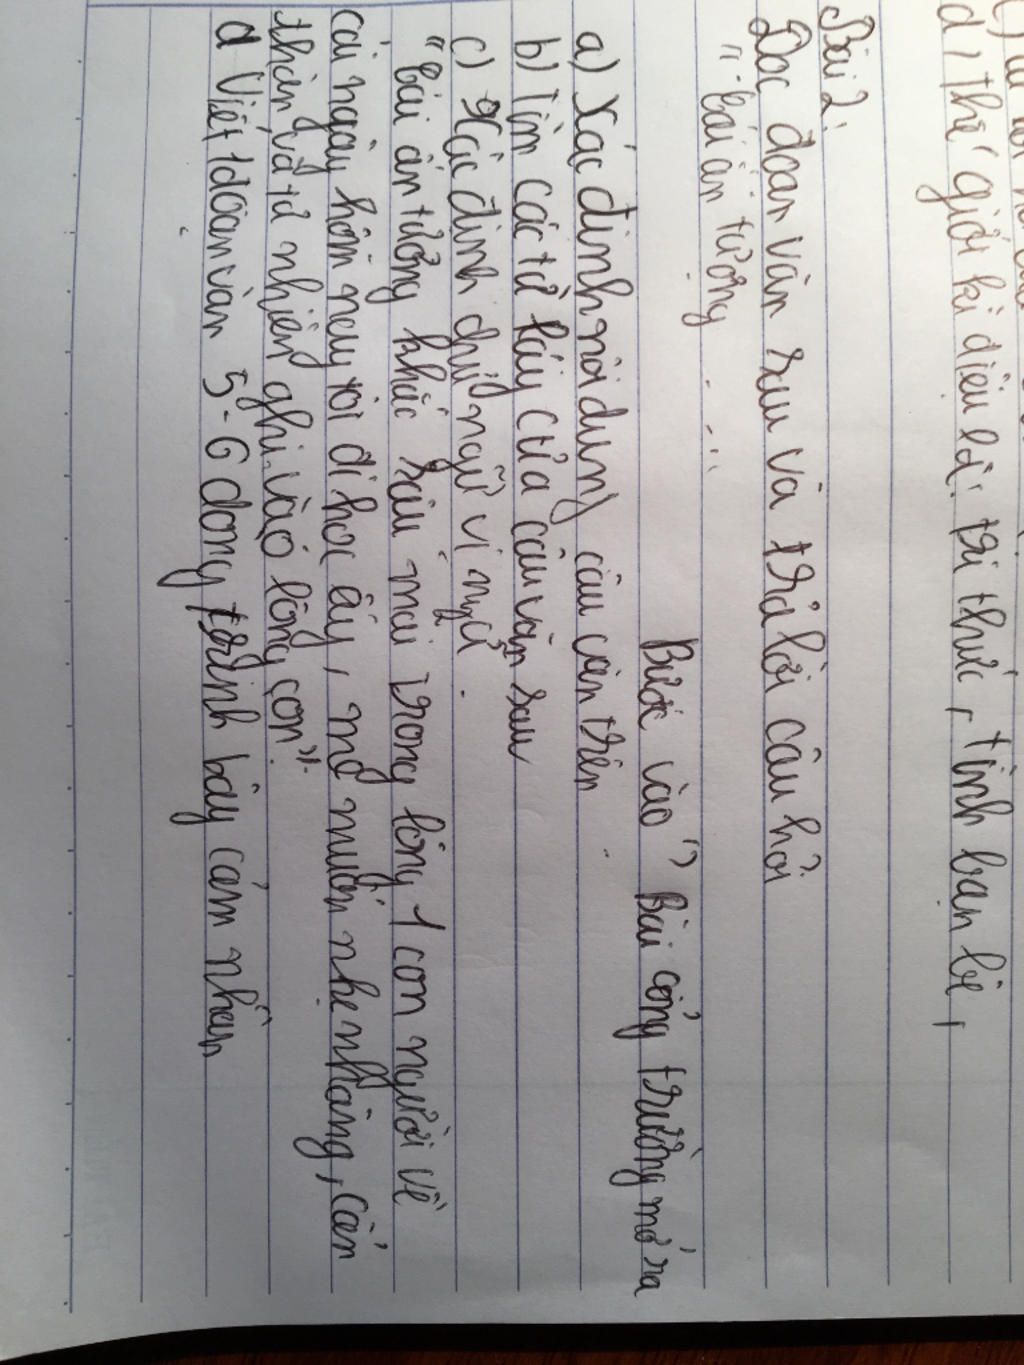 d, thế giới kì diệu là: tri thức, tình bạn bè,
Bài 2:
Đọc đoạn văn sau và trả lời câu hỏi
"..bài ấn tượng ...
Bước vào" Bài cổng trường mở ra
a) Xác định nội dung câu văn trên
b) Tìm các từ láy của câu văn sau
c) Xác định chủ ngữ vị ngữ.
"cái ấn tượng khắc sâu mãi trong lòng 1 con người về
cái ngày hôm nay tôi đi học ấy, mẹ muốn nhẹ nhàng, cẩn
thận và tự nhiên ghi vào lòng con".
d Viết đoạn văn 5-6 dòng trình bày cảm nhận